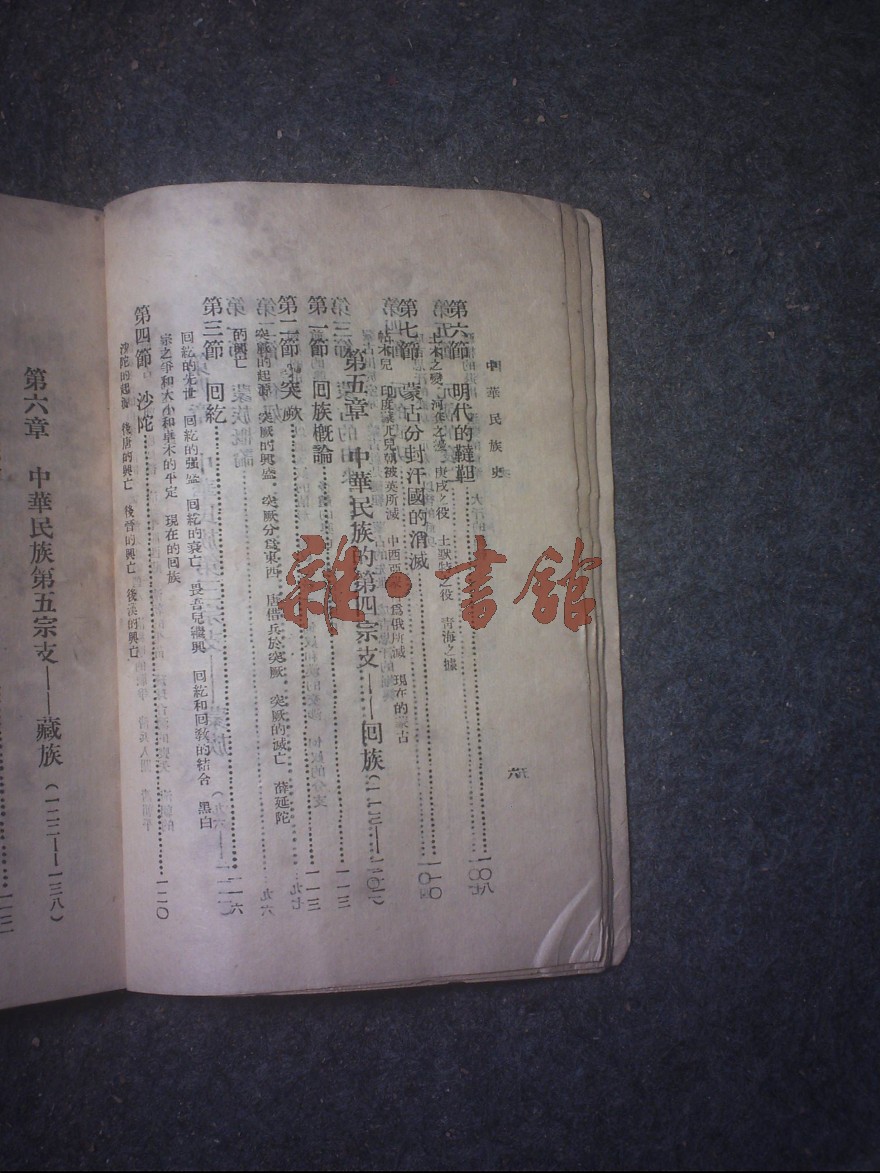 中華民族史
六
第六節 明代的韃靼……一〇八
土木之變 河套之逐 庚戌之役 土默特之役 青海之據
第七節 蒙古分封汗國的消滅……一一〇
帖木兒 印度蒙兀兒朝被英所滅 中西亞 爲俄所滅 現在的蒙古
第五章 中華民族的第四宗支——回族(一一三——一二一)
第一節 回族概論……一一三
第二節 突厥
突厥的起源 突厥的興盛 突厥分爲東西 唐借兵於突厥 突厥的滅亡 薛延陀
的興亡
第三節 回紇……一一六
回紇的先世 回紇的强盛 回紇的衰亡 畏吾兒繼興 回紇和回教的結合 黑白
宗之爭和大小和卓木的平定 現在的回族
第四節 沙陀……一二〇
沙陀的起源 後唐的興亡 後晉的興亡 後漢的興亡
第六章 中華民族第五宗支——藏族(一二二——一三八)
雜·書館